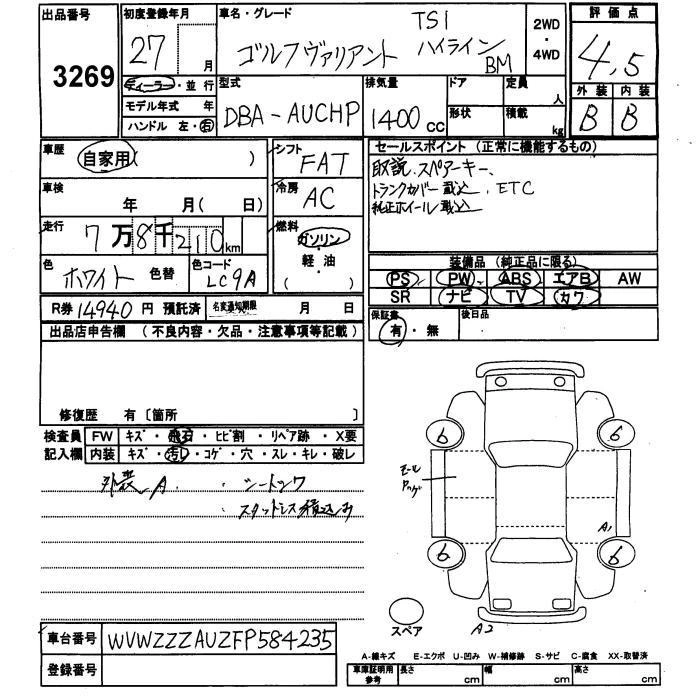 出品番号
3269
初度登録年月
27 月
車名・グレード
TSI
ゴルフヴァリアント ハイライン BM
2WD
・
4WD
評価点
4.5
外装 内装
B B
ディーラー・並行
モデル年式 年
ハンドル 左・右
型式
DBA-AUCHP
排気量
1400cc
ドア
形状
定員
人
積載
kg
車歴
自家用( )
車検
年 月( 日)
走行
7万8千210km
色
ホワイト 色替
色コード
LC9A
シフト
FAT
冷房
AC
燃料
ガソリン
軽・油
( )
セールスポイント (正常に機能するもの)
取説、スペアーキー、
トランクカバー載込、ETC
純正ホイール載込
装備品 (純正品に限る)
PS PW ABS エアB AW
SR ナビ TV カワ
保証書
有・無
後日品
R券 14940 円 預託済 名変通知期限 月 日
出品店申告欄 (不良内容・欠品・注意事項等記載)
修復歴 有〔箇所
検査員
記入欄
FW キズ・飛石・ヒビ割・リペア跡・X要
内装 キズ・汚レ・コゲ・穴・スレ・キレ・破レ
外装 A
・シートシワ
・スタッドレス積込み
6 6
モール
A1
6 6
スペア
A2
車台番号 WVWZZZAUZFP584235
登録番号
A-線キズ E-エクボ U-凹み W-補修跡 S-サビ C-腐食 XX-取替済
車庫証明用
参考
長さ cm 幅 cm 高さ cm